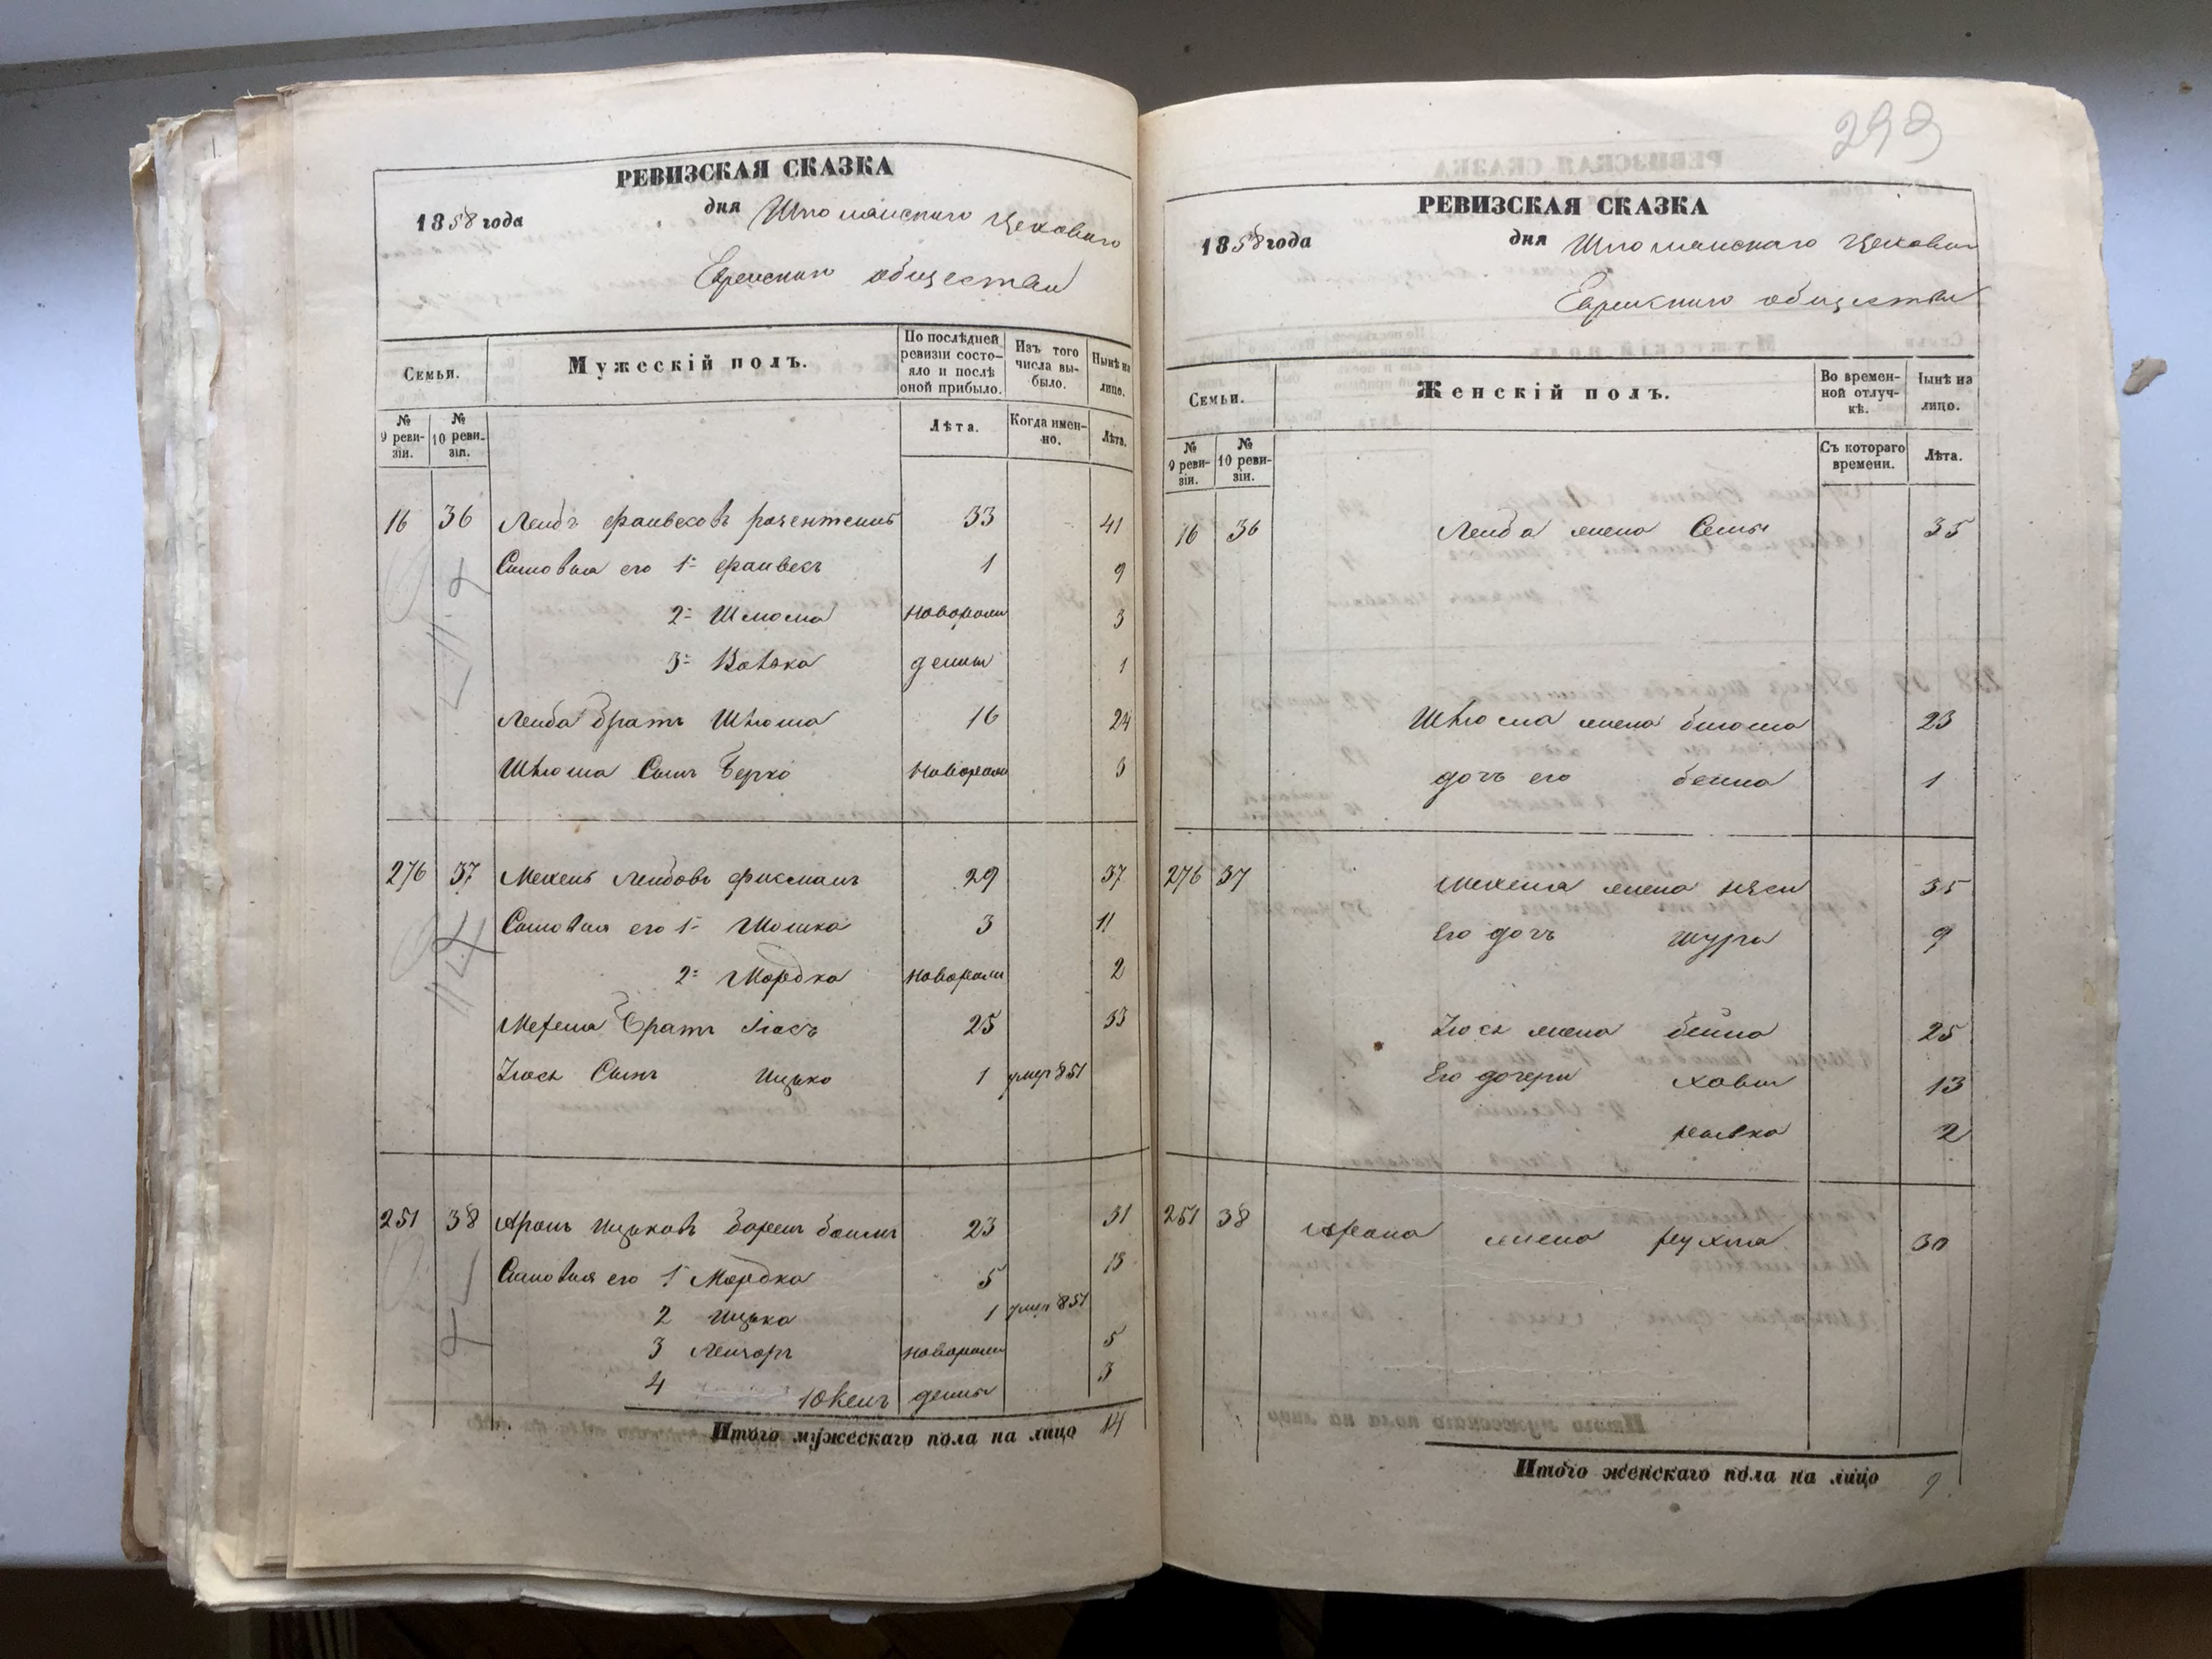 РЕВИЗСКАЯ СКАЗКА
1858 года
дня Шполянскаго Цеховаго
Еврейскаго общества
Семьи.
Мужескій полъ.
По послѣдней ревизіи состояло и послѣ оной прибыло.
Изъ того числа выбыло.
Нынѣ на лицо.
№ 9 ревизіи.
№ 10 ревизіи.
Лѣта.
Когда именно.
Лѣта.
16 36 Лейбъ Файвеловъ 33 41
Сыновья его 1й 1 9
2й Шлома новорож 3
3й Волько денны 1
Лейба братъ 16 24
Сынъ Берко новорож 3
276 37 Мехель Лейбовъ Фиксманъ 29 37
Сыновья его 1й Мошко 3 11
2й Мордко новорож 2
Мехеля братъ Іосъ 25 33
Іося Сынъ Ицько 1 умер 851
251 38 Аронъ Ицьковъ 23 31
Сыновья его 1й Мордко 5 13
2 Ицько 1 умер 851
3 Лейзоръ новорож 5
4 денны 3
Итого мужескаго пола на лицо 14
293
РЕВИЗСКАЯ СКАЗКА
1858 года
дня Шполянскаго Цеховаго
Еврейскаго общества
Семьи.
Женскій полъ.
Во временной отлучкѣ.
Нынѣ на лицо.
№ 9 ревизіи.
№ 10 ревизіи.
Съ котораго времени.
Лѣта.
16 36 Лейба жена 35
жена 23
дочь его Бейла 1
276 37 Мехеля жена 35
Его дочь Шура 9
Іося жена Бейла 25
Его дочери Хова 13
Ривка 2
251 38 Арона жена Рухля 30
Итого женскаго пола на лицо 9